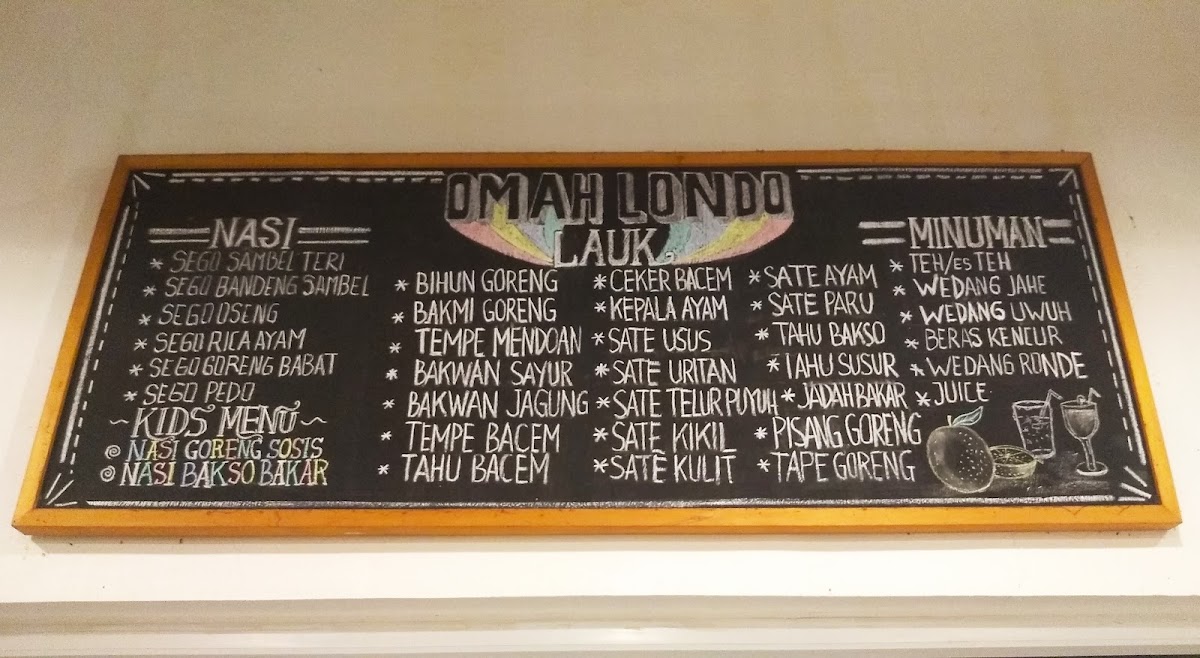 OMAH LONDO
NASI
* SEGO SAMBEL TERI
* SEGO BANDENG SAMBEL
* SEGO OSENG
* SEGO RICA AYAM
* SEGO GORENG BABAT
* SEGO PEDO
~KIDS' MENU~
NASI GORENG SOSIS
NASI BAKSO BAKAR
LAUK
* BIHUN GORENG
* BAKMI GORENG
* TEMPE MENDOAN
* BAKWAN SAYUR
* BAKWAN JAGUNG
* TEMPE BACEM
* TAHU BACEM
* CEKER BACEM
* KEPALA AYAM
* SATE USUS
* SATE URITAN
* SATE TELUR PUYUH
* SATE KIKIL
* SATE KULIT
* SATE AYAM
* SATE PARU
* TAHU BAKSO
* TAHU SUSUR
* JADAH BAKAR
* PISANG GORENG
* TAPE GORENG
MINUMAN
* TEH/ES TEH
* WEDANG JAHE
* WEDANG UWUH
* BERAS KENCUR
* WEDANG RONDE
* JUICE